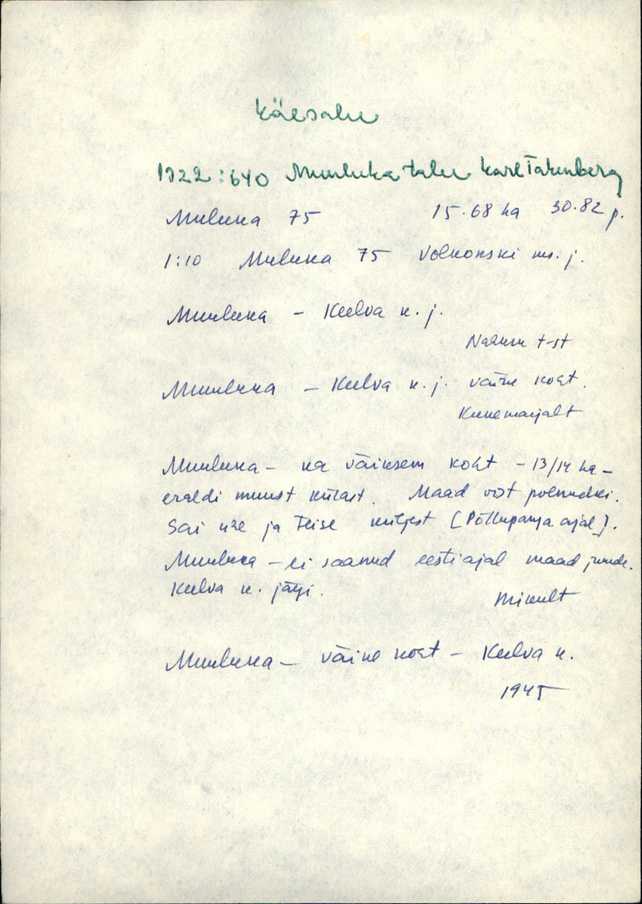 Käesalu
1922:640 Muuluka talu Karl Takenberg
Muluka 75 15.68 ha 30.82 p.
1:10 Muluka 75 Volkonski m. j.
Muuluka - Keelva k. j.
t-st
Muuluka - Keelva k. j. väike koht.
Muuluka - ka väiksem koht - 13/14 ha -
eraldi muust külast. Maad vot polnudki.
Sai üle ja Teise küljest (Põllupanga ajal).
Muuluka - ei saanud eesti ajal maad juurde.
Keelva k. järgi.
Mikult
Muuluka - väike koht - Keelva k.
1945